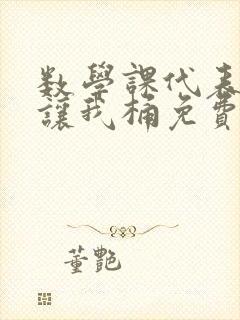 数学課代表
讓我桶免費
董艷